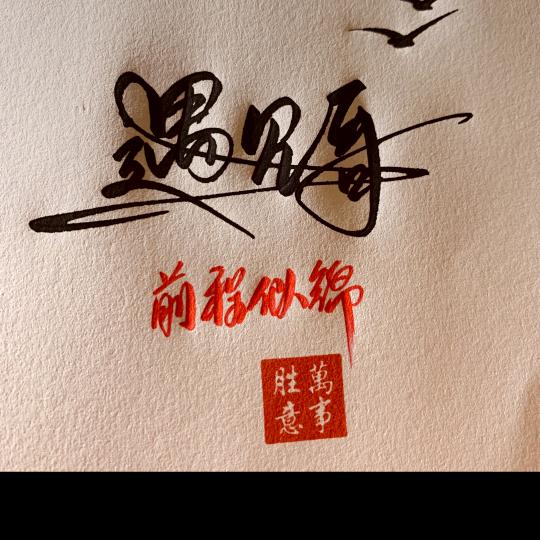 遇见
前程似锦
萬事
胜意